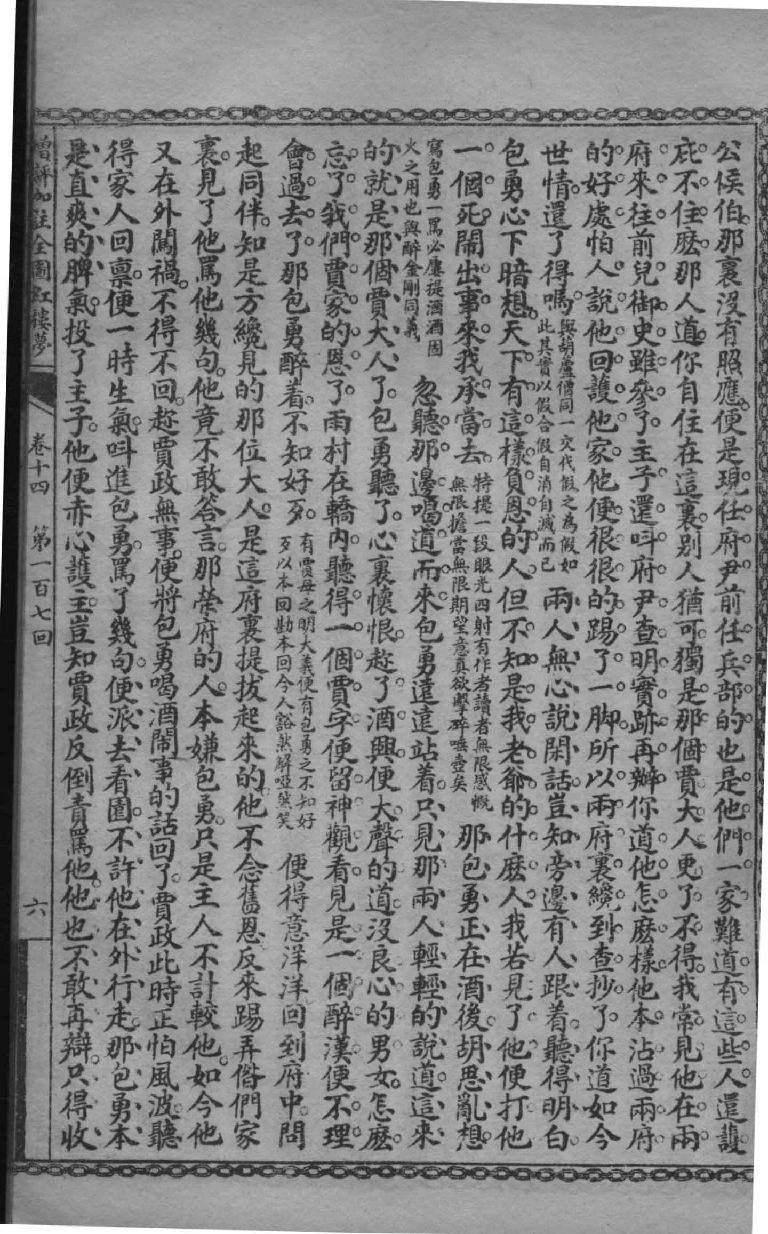 公侯伯那裏沒有照應便是現任府尹前任兵部的也是他們一家難道有這些人還護
庇不住麽那人道你自住在這裏别人猶可獨是那個賈大人更了不得我常見他在兩
府來往前兒御史雖參了主子還呌府尹查明實跡再辦你道他怎麽樣他本沾過兩府
的好處怕人說他回護他家他便很很的踢了一脚所以兩府裏纔到查抄了你道如今
世情還了得嗎與葫蘆僧同一交代假之爲假如此其實以假合假自消自滅而已兩人無心說閑話豈知旁邊有人跟着聽得明白
包勇心下暗想天下有這樣負恩的人但不知是我老爺的什麽人我若見了他便打他
一個死鬧出事來我承當去特提一段眼光四射有作者讀者無限感慨無限擔當無限期望意真欲擊碎唾壺矣那包勇正在酒後胡思亂想
忽聽那邊喝道而來包勇遠遠站着只見那兩人輕輕的說道這來
寫包勇一罵必屢提酒酒固火之用也與醉金剛同義
的就是那個賈大人了包勇聽了心裏懷恨趁了酒興便大聲的道沒良心的男女怎麽
忘了我們賈家的恩了雨村在轎内聽得一個賈字便留神觀看見是一個醉漢便不理
會過去了那包勇醉着不知好歹有賈母之明大義便有包勇之不知好歹以本回勘本回令人豁然解啞然笑便得意洋洋回到府中問
起同伴知是方纔見的那位大人是這府裏提拔起來的他不念舊恩反來踢弄偺們家
裏見了他罵他幾句他竟不敢答言那榮府的人本嫌包勇只是主人不計較他如今他
又在外闖禍不得不回趁賈政無事便將包勇喝酒鬧事的話回了賈政此時正怕風波聽
得家人回禀便一時生氣呌進包勇罵了幾句便派去看園不許他在外行走那包勇本
是直爽的脾氣投了主子他便赤心護主豈知賈政反倒責罵他他也不敢再辯只得收
增評加註全圖紅樓夢
卷十四
第一百七回
六